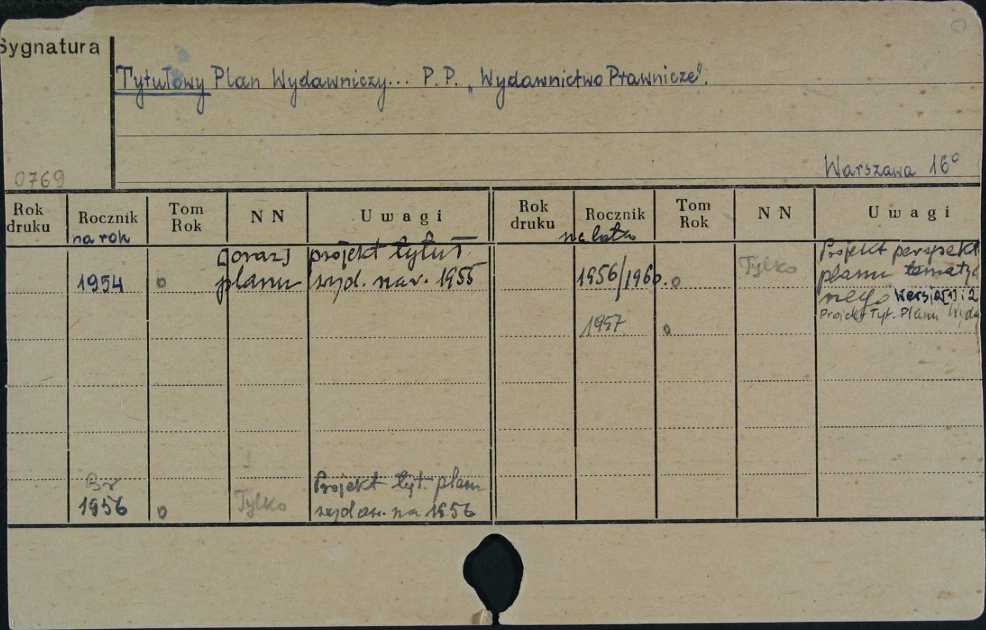 Sygnatura
Tytułowy Plan Wydawniczy... P.P. „Wydawnictwo Prawnicze".
Warszawa 16°
0769
Rok druku Rocznik na rok Tom Rok NN Uwagi Rok druku Rocznik na lata Tom Rok NN Uwagi
1954 o [oraz] planu projekt tytuł. wyd. na r. 1955
1956/1960. o Tylko Projekt perspekt planu tematycz nego Wersja [1] i 2
1957 o Projekt Tyt. Planu Wyda
1956 o Tylko Projekt tyt. planu wydaw. na 1956